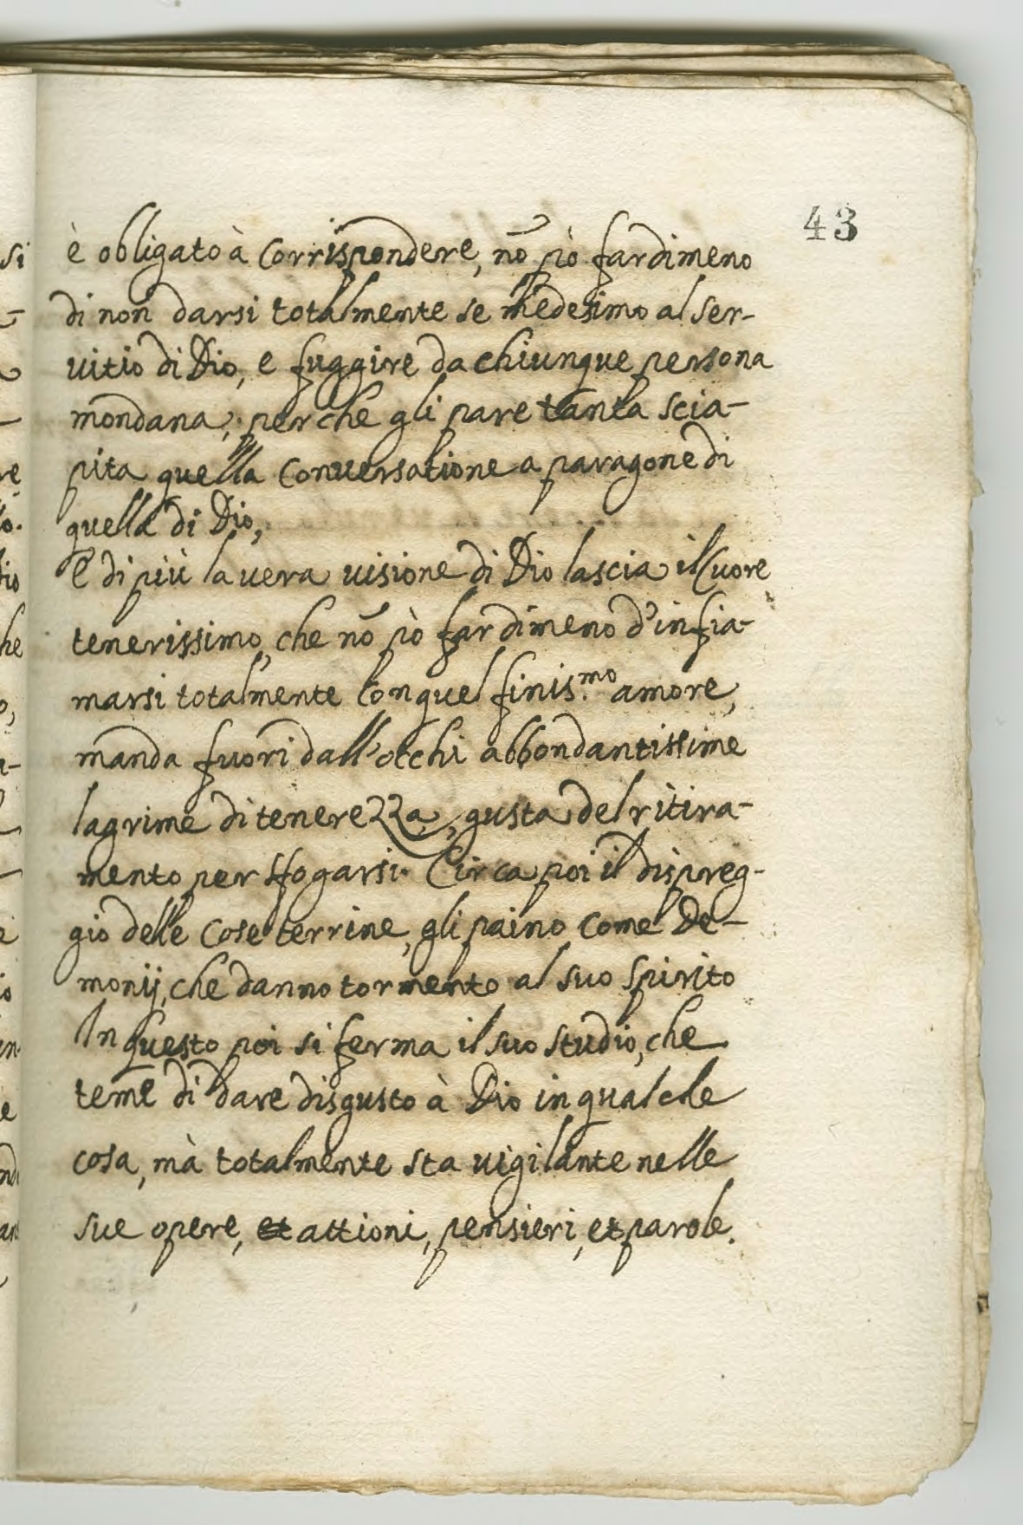 43
è obligato à corrispondere, nõ pò far dimeno
di non darsi totalmente se medesimo al ser-
uitio di Dio, e fuggire da chiunque persona
mondana, perche gli pare tanta scia-
pita quella conuersatione a paragone di
quella di Dio,
E di più la uera uisione di Dio lascia il Cuore
tenerissimo, che nõ pò far dimeno d'infia-
marsi totalmente con quel finis.mo amore,
manda fuori dall'occhi abbondantissime
lagrime di tenerezza, gusta del ritira-
mento per sfogarsi. Circa poi il dispreg-
gio delle cose terrine, gli paino come De-
monij, che danno tormento al suo spirito
In questo poi si ferma il suo studio, che
teme di dare disgusto à Dio in qualche
cosa, mà totalmente sta uigilante nelle
sue opere, et attioni, pensieri, et parole.